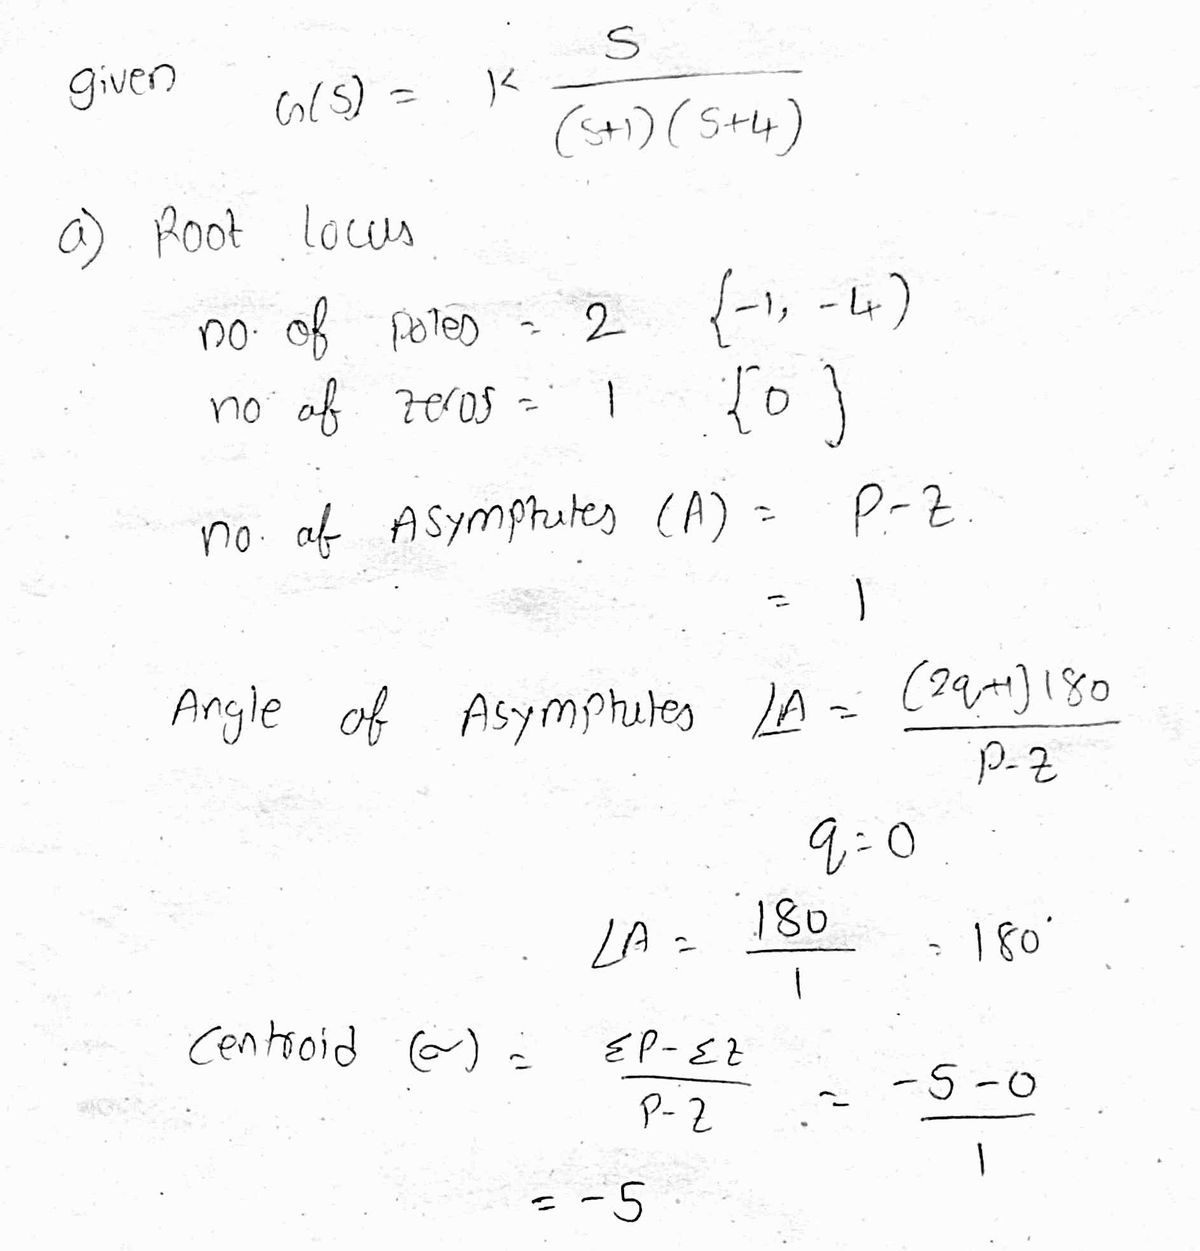 given G(S) = K S / (S+1)(S+4)
a) Root locus
no. of poles = 2 {-1, -4)
no of zeros = 1 {0}
no. of Asymptutes (A) = P-Z.
= 1
Angle of Asymptutes ∠A = (2q+1)180 / P-Z
q=0
∠A = 180 / 1 = 180°
Centroid (σ) = ΣP-ΣZ / P-Z = -5-0 / 1
= -5